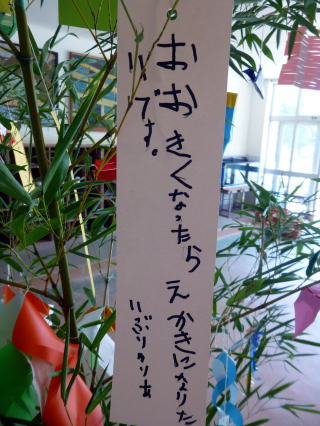 おおきくなったらえかきになりた
いです。
いぶりりりあ